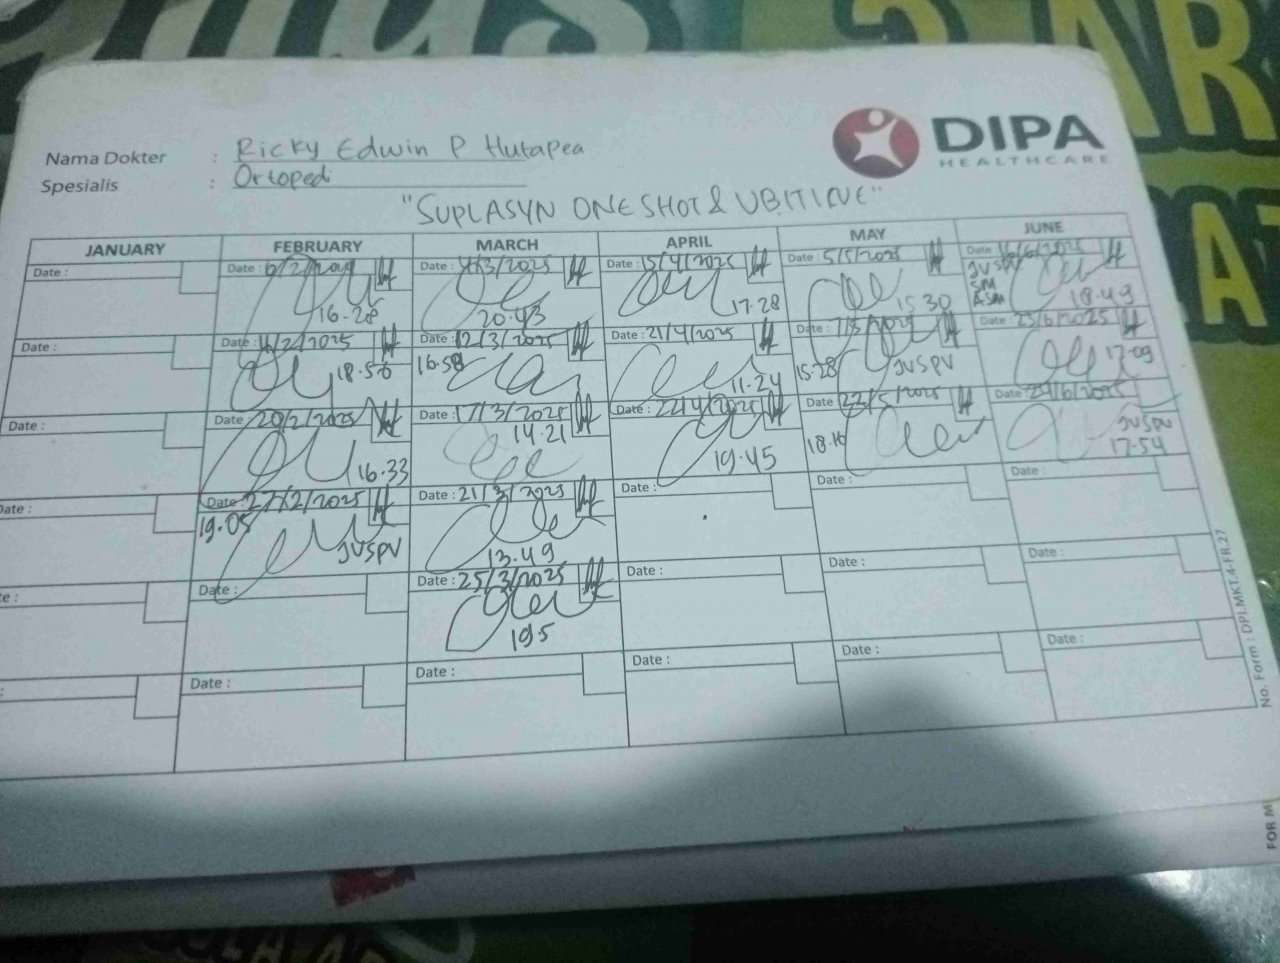 DIPA
HEALTHCARE
Nama Dokter : Ricky Edwin P Hutapea
Spesialis : Ortopedi
"SUPLASYN ONE SHOT &
JANUARY FEBRUARY MARCH APRIL MAY JUNE
Date :
Date :
Date :
Date :
Date :
16.28
Date : 11/2/2025
18.56
Date : 20/2/2025
16.33
Date : 27/2/2025
19.05
JVSPV
Date :
Date :
Date : /3/2025
20.43
Date : 12/3/2025
16.58
Date : 17/3/2025
14.21
Date : 21/3/2025
13.49
Date : 25/3/2025
Date :
Date : 15/4/2025
17.28
Date : 21/4/2025
11.24
Date : 22/4/2025
19.45
Date :
Date :
Date :
Date : 5/5/2025
15.30
Date :
15.28
JVSPV
Date : 22/5/2025
18.16
Date :
Date :
Date :
Date : 16/6/2025
JVSPV
SM
ASM
18.49
Date : 23/6/2025
17.09
Date :
JVSPV
17.54
Date :
Date :
Date :
No. Form : DPI.MKT.4-FR.27
FOR M